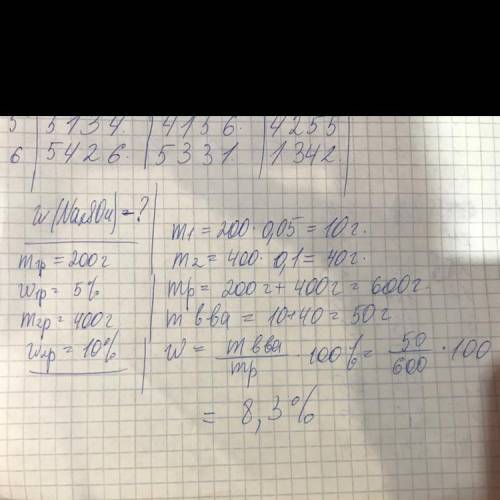 5 5134. 4156. 4255
6 5426. 5331. 1342.
w(Na2SO4) - ?
m1р = 200г
w1р = 5%
m2р = 400г
w2р = 10%
m1 = 200 · 0,05 = 10 г.
m2 = 400 · 0,1 = 40 г.
mр = 200 г + 400 г = 600 г.
m в ва = 10+40 = 50 г
w = m в ва / mр · 100% = 50 / 600 · 100
= 8,3%